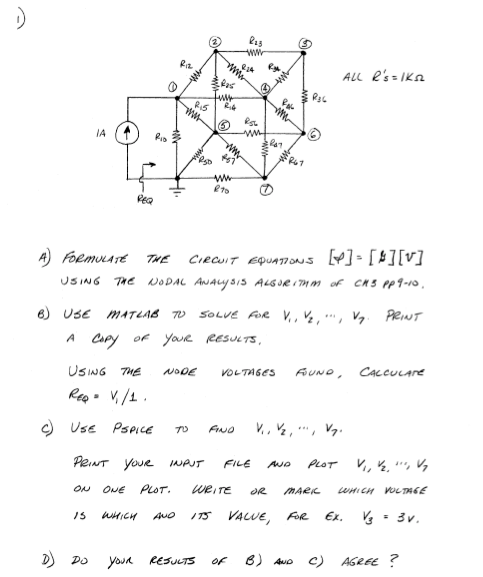 1)
② R23 ③
R12 R24 R34
ALL R's = 1KΩ
R25
① ④ R36
R15 R14 R46
1A R10 ⑤ R56 ⑥
R47
R50 R57 R67
R70 ⑦
REQ
A) FORMULATE THE CIRCUIT EQUATIONS [φ] = [y][V]
USING THE NODAL ANALYSIS ALGORITHM OF CH3 PP9-10.
B) USE MATLAB TO SOLVE FOR V1, V2, ..., V7. PRINT
A COPY OF YOUR RESULTS.
USING THE NODE VOLTAGES FOUND, CALCULATE
REQ = V1/1.
C) USE PSPICE TO FIND V1, V2, ..., V7.
PRINT YOUR INPUT FILE AND PLOT V1, V2, ..., V7
ON ONE PLOT. WRITE OR MARK WHICH VOLTAGE
IS WHICH AND ITS VALUE, FOR EX. V3 = 3V.
D) DO YOUR RESULTS OF B) AND C) AGREE?